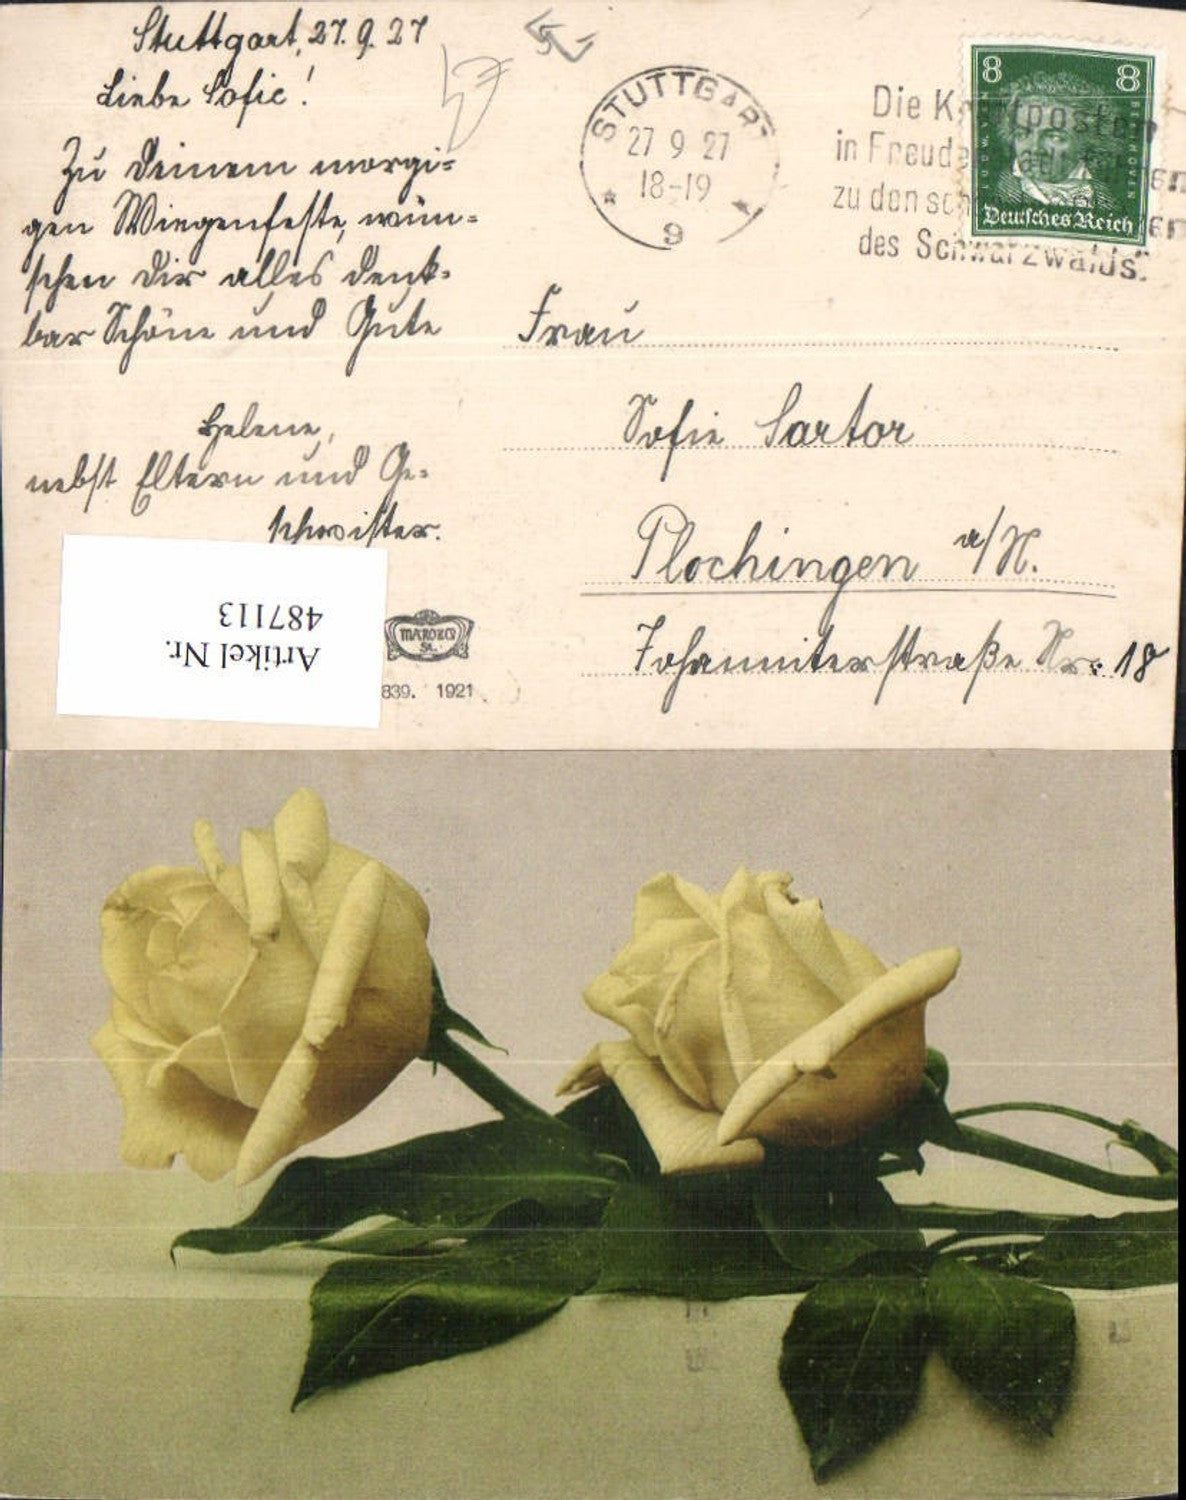 Stuttgart, 27. 9. 27
Liebe Sofie!
Zu Deinem morgi=
gen Wiegenfeste, wün=
schen Dir alles denk=
bar Schöne und Gute
Helene,
nebst Eltern und Ge=
schwister.
STUTTGART
27 9 27
18-19
9
Die Kraftposten
in Freudenstadt führen
zu den sch
des Schwarzwalds".
8 8
LUDW. VAN BEETHOVEN
Deutsches Reich
Frau
Sofie Sartor
Plochingen a/N.
Johanniterstraße Nr. 18
Artikel Nr.
487113
839. 1921